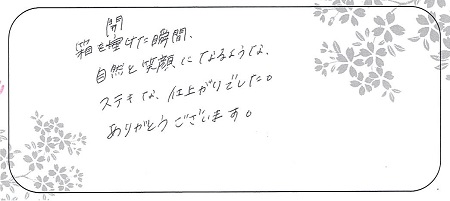 開
箱を開けた瞬間、
自然と笑顔になるような、
ステキな、仕上がりでした。
ありがとうございます。